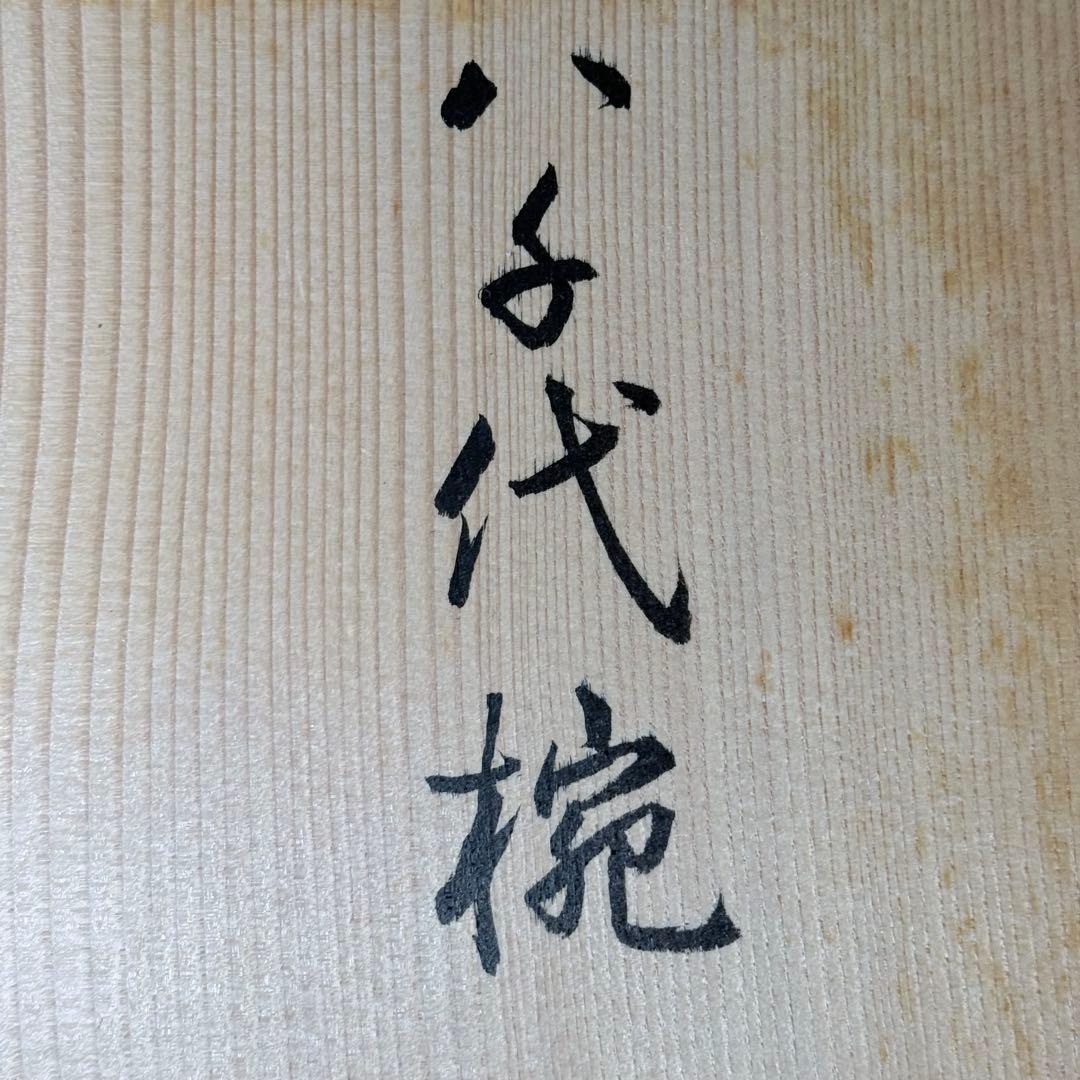 八千代椀